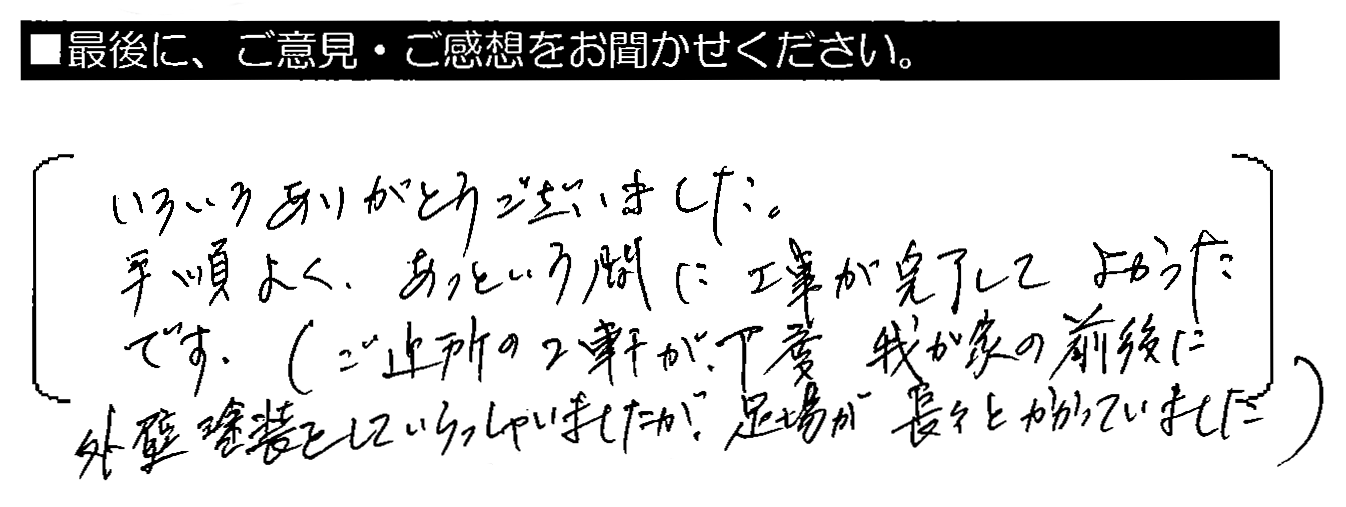 ■最後に、ご意見・ご感想をお聞かせください。
いろいろありがとうございました。
手順よく、あっという間に工事が完了してよかった
です。(ご近所の2軒が、丁度我が家の前後に
外壁塗装をしていらっしゃいましたが、足場が長々とかかっていました)